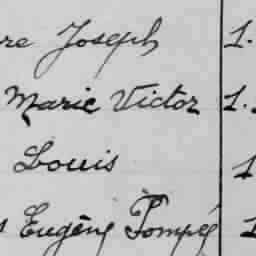 re Joseph 1.
Marie Victor 1.
Louis 1
s Eugène Pompéé 1